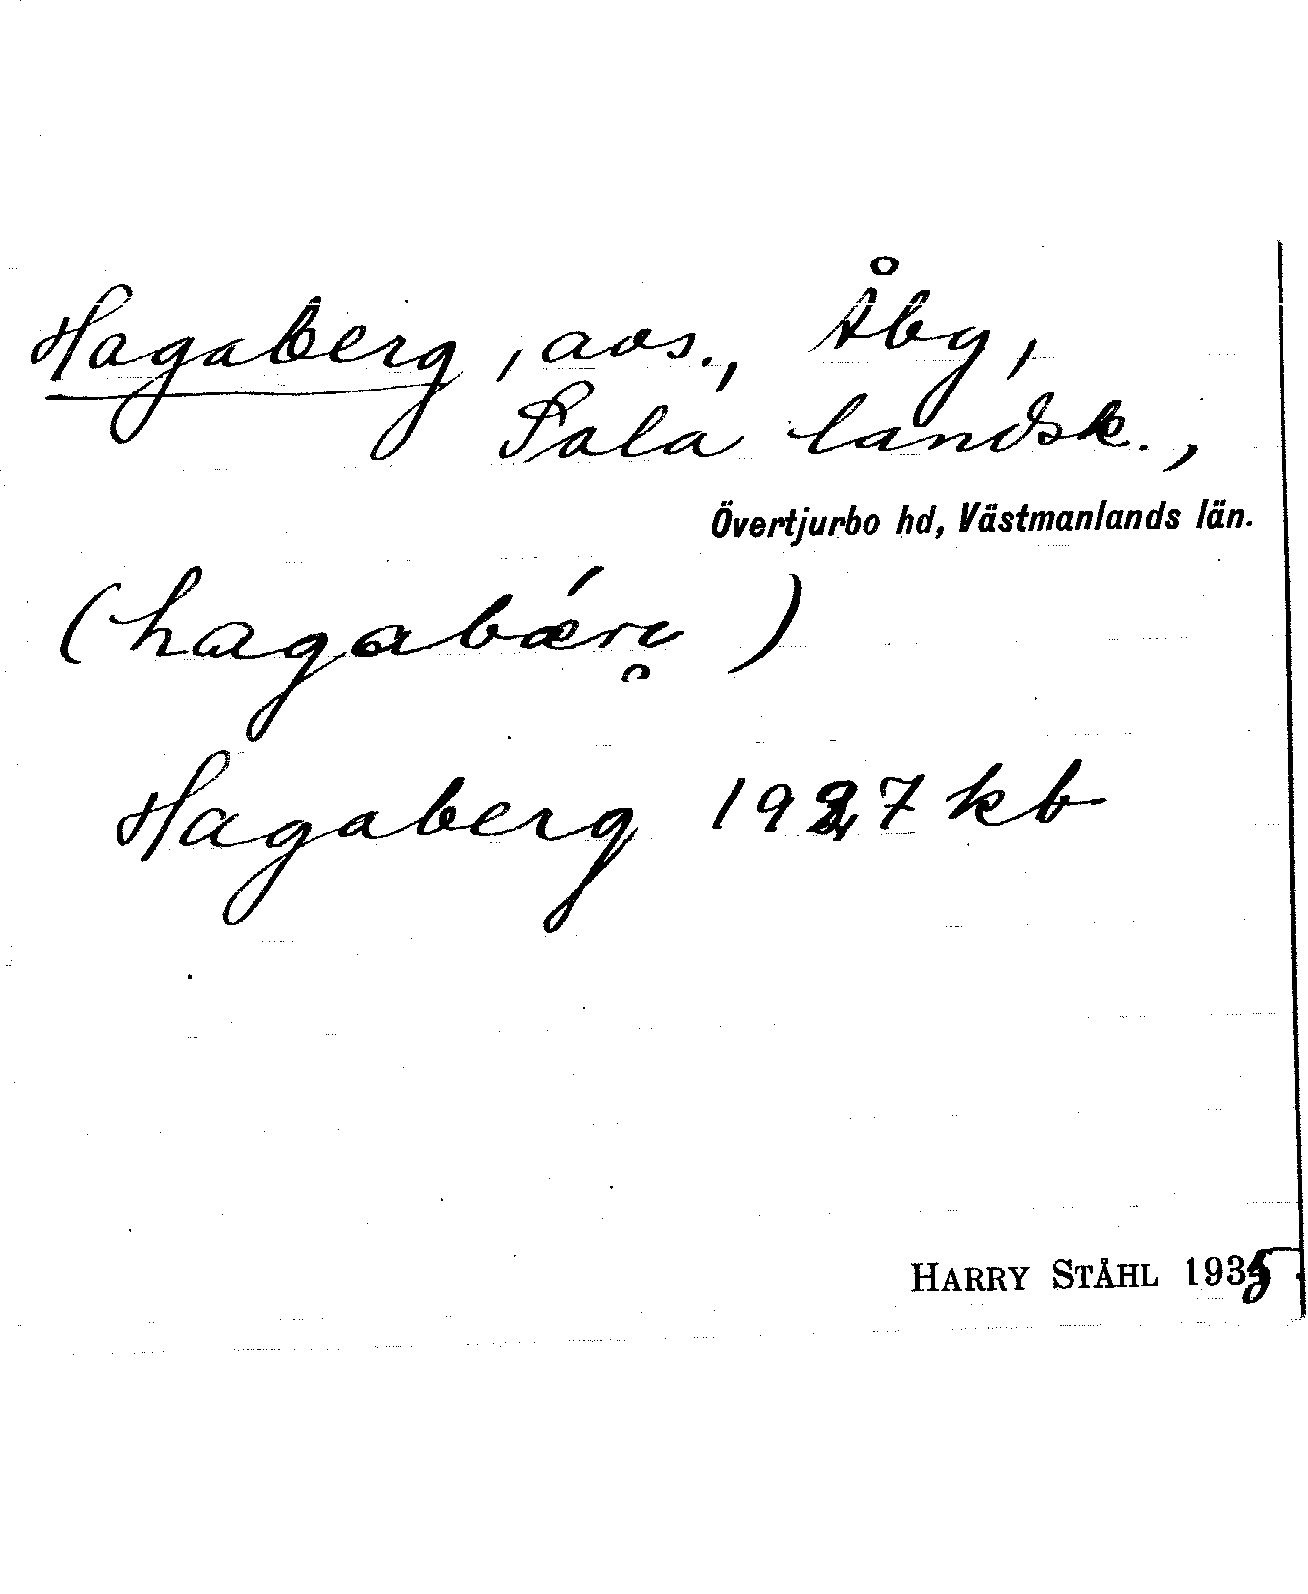 Hagaberg, avs., Åby,
Sala landsk.,
Övertjurbo hd, Västmanlands län.
Hagaberg 1927 kb
HARRY STÅHL 1935